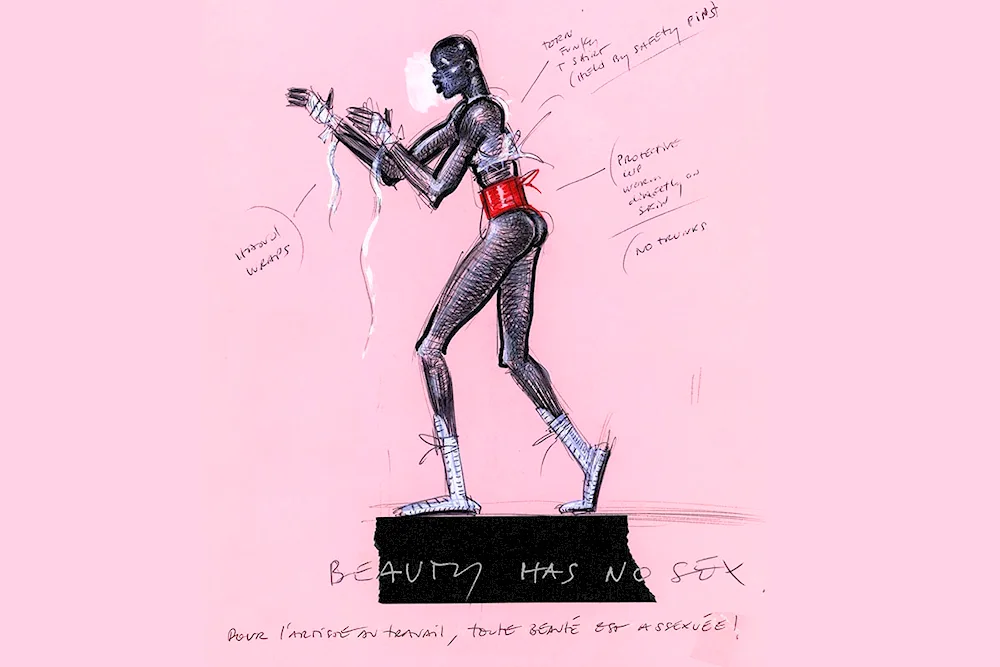 TORN
FUNKY
T SHIRT
(HELD BY SAFETY PINS)
PROTECTIVE
CUP
WORN
DIRECTLY ON
SKIN
(NO TRUNKS
HAND
WRAPS
BEAUTY HAS NO SEX
POUR L'ARTISTE AU TRAVAIL, TOUTE BEAUTÉ EST ASSEXUÉE!